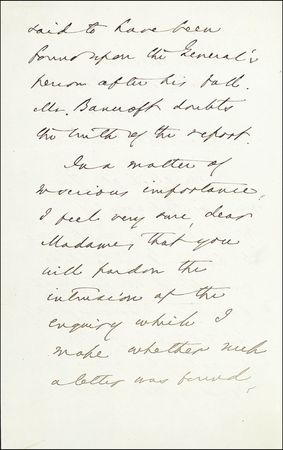 said to have been
found upon the General's
person after his fall.
Mr. Bancroft doubts
the truth of the report.
In a matter of
 importance,
I feel very sure, dear
Madame, that you
will pardon the
intrusion of the
enquiry which I
make whether such
a letter was found,